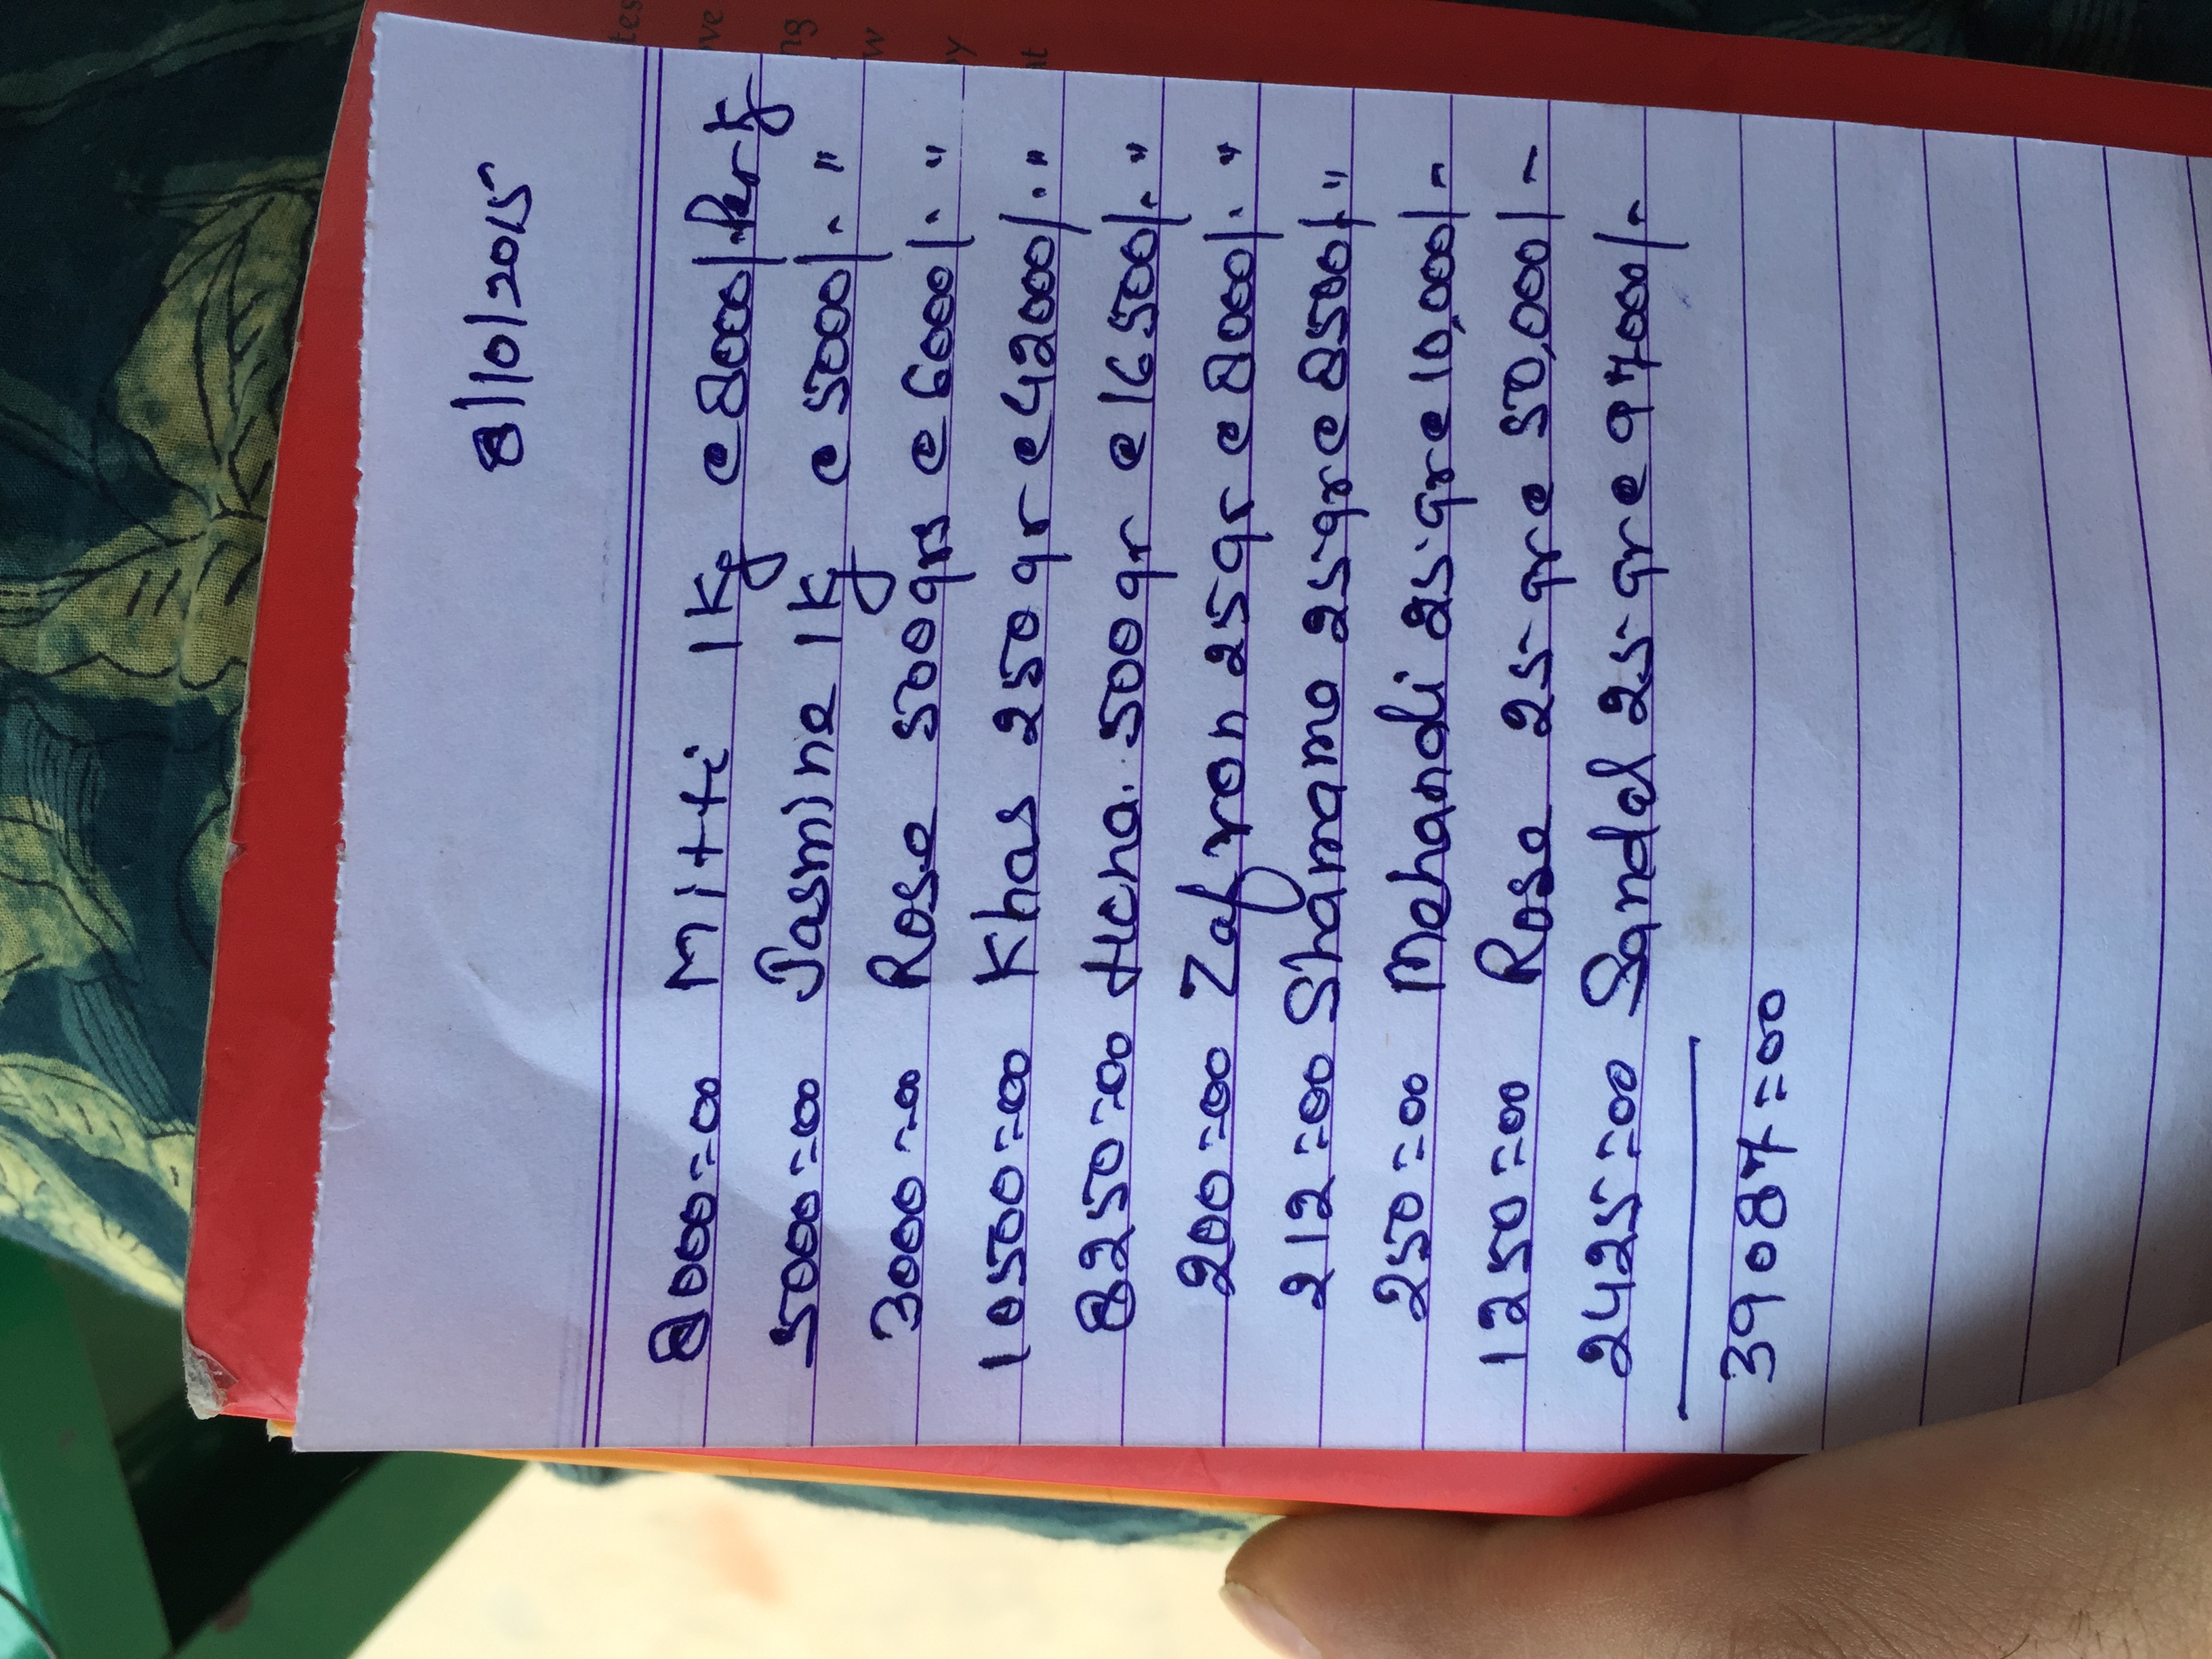 8/10/2015
8000=00 Mitti 1Kg @ 8000/. Per Kg
5000=00 Jasmine 1Kg @ 5000/- "
3000=00 Rose 500grs @ 6000/- "
10500=00 Khas 250gr @ 42000/- "
8250=00 Hena. 500gr @ 16500/- "
200=00 Zafron 25gr @ 8000/- "
212=00 Shamama 25gr @ 8500/- "
250=00 Mehandi 25gr @ 10,000/-
1250=00 Rose 25gr @ 50,000/-
2425=00 Sandal 25gr @ 97000/-
39087=00
tes
ove
ng
w
by
nt